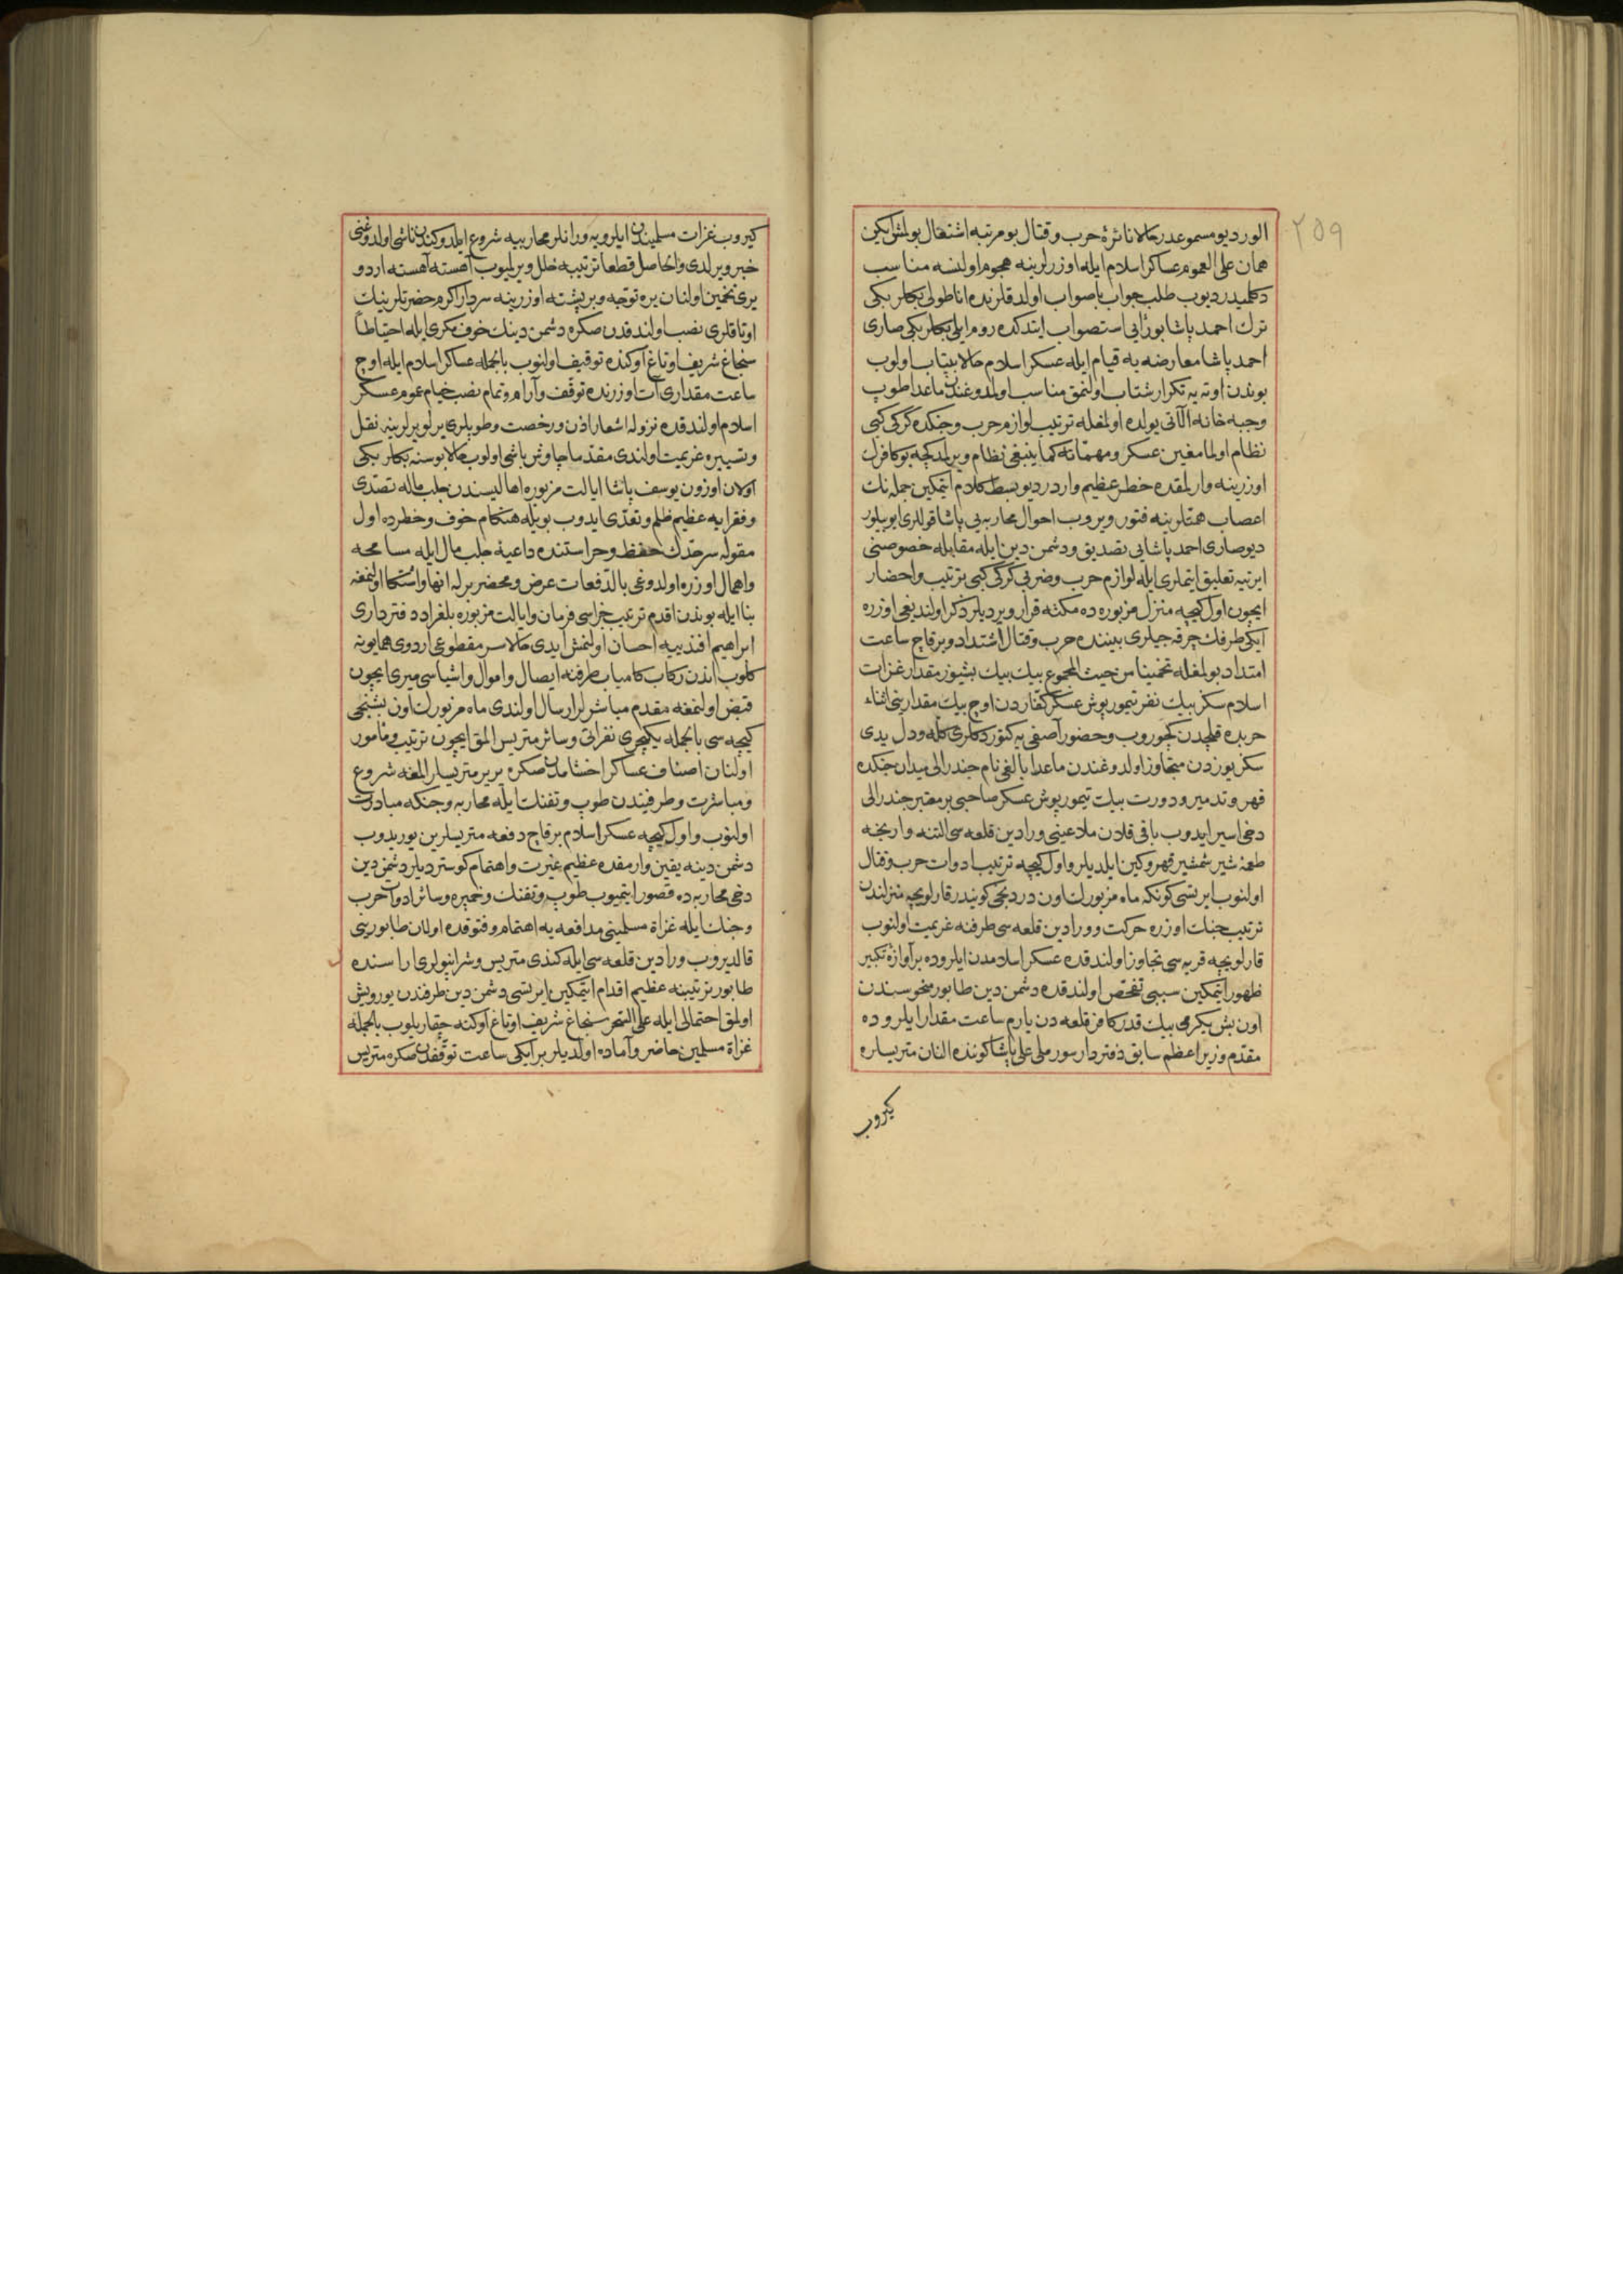 ٢٥٩
الور ديو مسموعدر حالا نائرۀ حرب و قتال بو مرتبه اشتعال بولمش ايكن
همان على العموم عساكر اسلام ايله اوزرلرينه هجوم اولنسه مناسب
دكلميدر ديوب طلب جواب باصواب اولدقلرنده اناطولى بكلربكى
ترك احمد پاشا بو رأيى استصواب ايتدكده روم ايلى بكلربكى صارى
احمد پاشا معارضه يه قيام ايله عسكر اسلام حالا بيتاب اولوب
بوندن اوته يه تكرار شتاب اولنمق مناسب اولمدوغندن ماعدا طوپ
وجبه خانه آلاتى يولده اولمغله ترتيب لوازم حرب و جنكده كركى كبى
نظام اولماغين عسكر و مهماته كما ينبغى نظام ويرلمدكجه بو كافرك
اوزرينه وارلمقده خطر عظيم واردر ديو بسط كلام ايتمكين جمله نك
اعصاب همتلرينه فتور ويروب احوال محاربه يى پاشا قوللرى ايو بيلور
ديو صارى احمد پاشايى تصديق و دشمن دين ايله مقابله خصوصنى
ايرتيه تعليق ايتملرى ايله لوازم حرب و ضربى كركى كبى ترتيب و احضار
ايچون اول كيجه منزل مزبوره ده مكثه قرار ويرديلر ذكر اولنديغى اوزره
ايكى طرفك چرقه جيلرى بيننده حرب و قتال اشتداد و برقاچ ساعت
امتداد بولمغله تخمينا من حيث المجموع بيك بيك بشيوز مقدار غزات
اسلام سكز بيك نفر تيمورپوش عسكر كفاردن اوچ بيك مقدارينى اثناء
حربده قلجدن كچوروب و حضور آصفى يه كتوردكلرى كله و دل يدى
سكز يوزدن متجاوز اولدوغندن ماعدا بالفى نام جندرالى ميدان جنكده
قهر و تدمير و دورت بيك تيمورپوش عسكر صاحبى بر معتبر جندرالى
دخى اسير ايدوب باقى قلان ملاعينى ورادين قلعه سى التنه وارنجه
طعمۀ شير شمشير قهر و كين ايلديلر و اول كيجه ترتيب ادوات حرب و قتال
اولنوب ايرتسى كونكه ماه مزبورك اون دردنجى كونيدر قارلويچه منزلندن
ترتيب جنك اوزره حركت و ورادين قلعه سى طرفنه عزيمت اولنوب
قارلويچه قريه سى تجاوز اولندقده عسكر اسلامدن ايلروده بر آوازۀ تكبير
ظهور ايتمكين سببى تفحص اولندقده دشمن دين طابور منحوسندن
اون بش يكرمى بيك قدر كافر قلعه دن يارم ساعت مقدار ايلروده
مقدم وزير اعظم سابق دفتردار سورملى على پاشا كوننده النان متريسلره
كيروب
كيروب غزات مسلميندن ايلرويه وارانلر محاربيه شروع ايلدوكندن ناشى اولدوغنى
خبر ويرلدى و الحاصل قطعا ترتيبه خلل ويرلميوب آهسته آهسته اردو
يرى تخمين اولنان يره توجه و بر پشته اوزرينه سردار اكرم حضرتلرينك
اوتاقلرى نصب اولندقدن صكره دشمن دينك خوف مكرى ايله احتياطاً
سنجاغ شريف اوتاغ اوكنده توقيف اولنوب بالجمله عساكر اسلام ايله اوچ
ساعت مقدارى آت اوزرنده توقف و آرام و تمام نصب خيام عموم عسكر
اسلام اولندقده نزوله اشعار اذن و رخصت و طوپلرى يرلو يرلرينه نقل
و تسييره عزيمت اولندى مقدما چاوش باشى اولوب حالا بوسنه بكلربكى
اولان اوزون يوسف پاشا ايالت مزبوره اهاليسندن جلب ماله تصدى
و فقرايه عظيم ظلم و تعدى ايدوب بويله هنكام خوف و خطرده اول
مقوله سرحدك حفظ و حراستنده داعيۀ جلب مال ايله مسامحه
و اهمال اوزره اولدوغى بالدفعات عرض و محضرلر ايله انها و اشتكا اولنمغه
بنا ايله بوندن اقدم ترتيب جزاسى فرمان و ايالت مزبوره بلغراد دفتردارى
ابراهيم افندييه احسان اولنمش ايدى حالا سر مقطوعى اردوى همايونه
كلوب اندن ركاب كامياب طرفنه ايصال و اموال و اشياسى ميرى ايچون
قبض اولنمغه مقدم مباشرلر ارسال اولندى ماه مزبورك اون بشنجى
كيجه سى بالجمله يكيچرى نفراتى و سائر متريس المق ايچون ترتيب و مأمور
اولنان اصناف عساكر اخشامدن صكره يريردن متريسلر المغه شروع
و مباشرت و طرفيندن طوپ و تفنك ايله محاربه و جنكه مبادرت
اولنوب و اول كيجه عسكر اسلام برقاچ دفعه متريسلرين يوريدوب
دشمن دينه يقين وارمقده عظيم غيرت و اهتمام كوسترديلر دشمن دين
دخى محاربه ده قصور ايتميوب طوپ و تفنك و خمپره و سائر ادوات حرب
و جنك ايله غزاة مسلمينى مدافعه يه اهتمام و فتوقده اولان طابورينى
قالديروب ورادين قلعه سى ايله كندى متريس و شرانپولرى اراسنده
طابور ترتيبنه عظيم اقدام ايتمكين ايرتسى دشمن دين طرفندن يورويش
اولمق احتمالى ايله على السحر سنجاغ شريف اوتاغ اوكنه چقاريلوب بالجمله
غزاة مسلمين حاضر و آماده اولديلر بر ايكى ساعت توقفدن صكره متريس